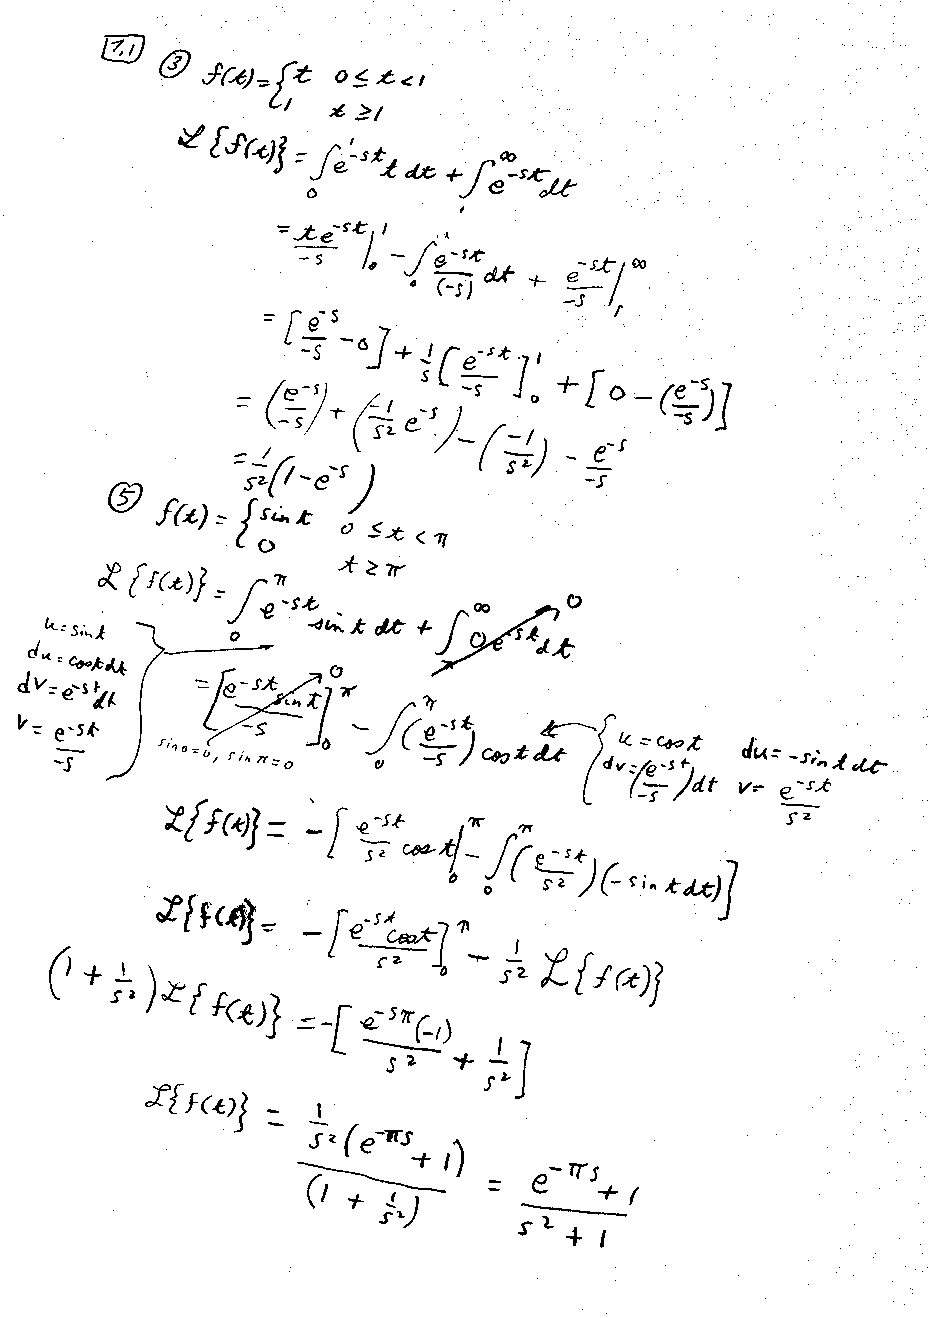 7.1 ③ f(t) = { t 0 ≤ t < 1
1 t ≥ 1
ℒ{f(t)} = ∫₀¹ e^{-st} t dt + ∫₁^∞ e^{-st} dt
= te^{-st}/-s |₀¹ - ∫₀¹ e^{-st}/(-s) dt + e^{-st}/-s |₁^∞
= [e^{-s}/-s - 0] + 1/s [e^{-st}/-s]₀¹ + [0 - (e^{-s}/-s)]
= (e^{-s}/-s) + (-1/s² e^{-s}) - (-1/s²) - e^{-s}/-s
= 1/s² (1 - e^{-s})
⑤ f(t) = { sin t 0 ≤ t < π
0 t ≥ π
ℒ{f(t)} = ∫₀^π e^{-st} sin t dt + ∫^∞ 0 e^{-st} dt 0
u = sin t
du = cos t dt
dv = e^{-st} dt
v = e^{-st}/-s
= [e^{-st} sin t/-s]₀^π 0 - ∫₀^π (e^{-st}/-s) cos t dt
sin 0 = 0, sin π = 0
u = cos t du = -sin t dt
dv = (e^{-st}/-s) dt v = e^{-st}/s²
ℒ{f(t)} = -[e^{-st}/s² cos t |₀^π - ∫₀^π (e^{-st}/s²)(-sin t dt)]
ℒ{f(t)} = -[e^{-st} cos t/s²]₀^π - 1/s² ℒ{f(t)}
(1 + 1/s²) ℒ{f(t)} = -[e^{-sπ}(-1)/s² + 1/s²]
ℒ{f(t)} = 1/s² (e^{-πs} + 1)/(1 + 1/s²) = e^{-πs} + 1/s² + 1